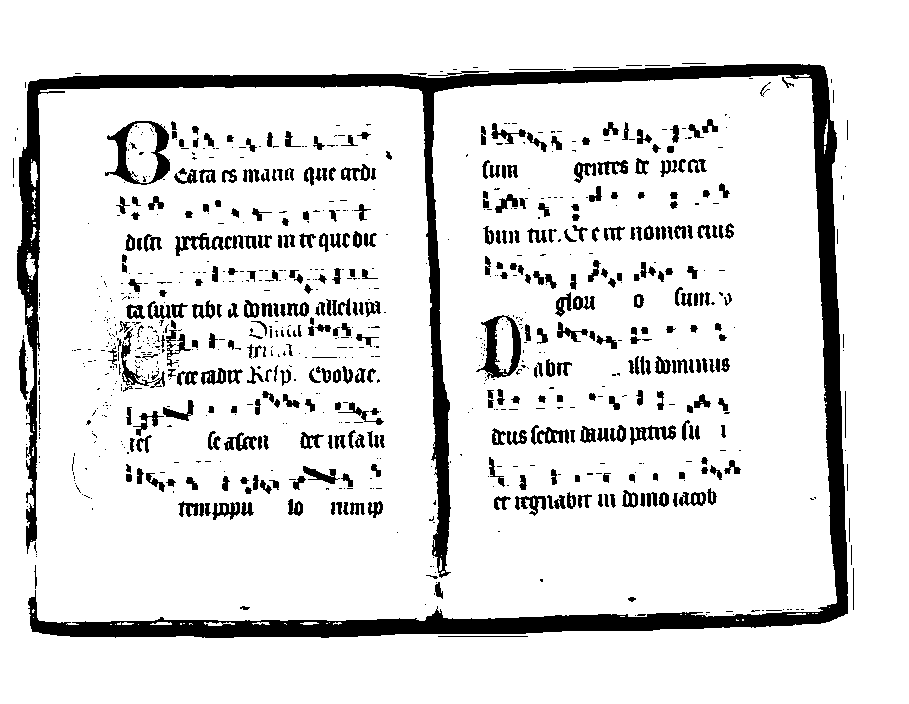 Beata es maria que credi
disti perficientur in te que dic
ta sunt tibi a domino alleluya.
Ecce radix Resp. Evovae.
ies se ascen det in salu
tem popu lo rum ip
sum gentes de preca
bun tur. Et e rit nomen eius
glori o sum.
Dabit illi dominus
deus sedem david patris su i
et regnabit in domo iacob